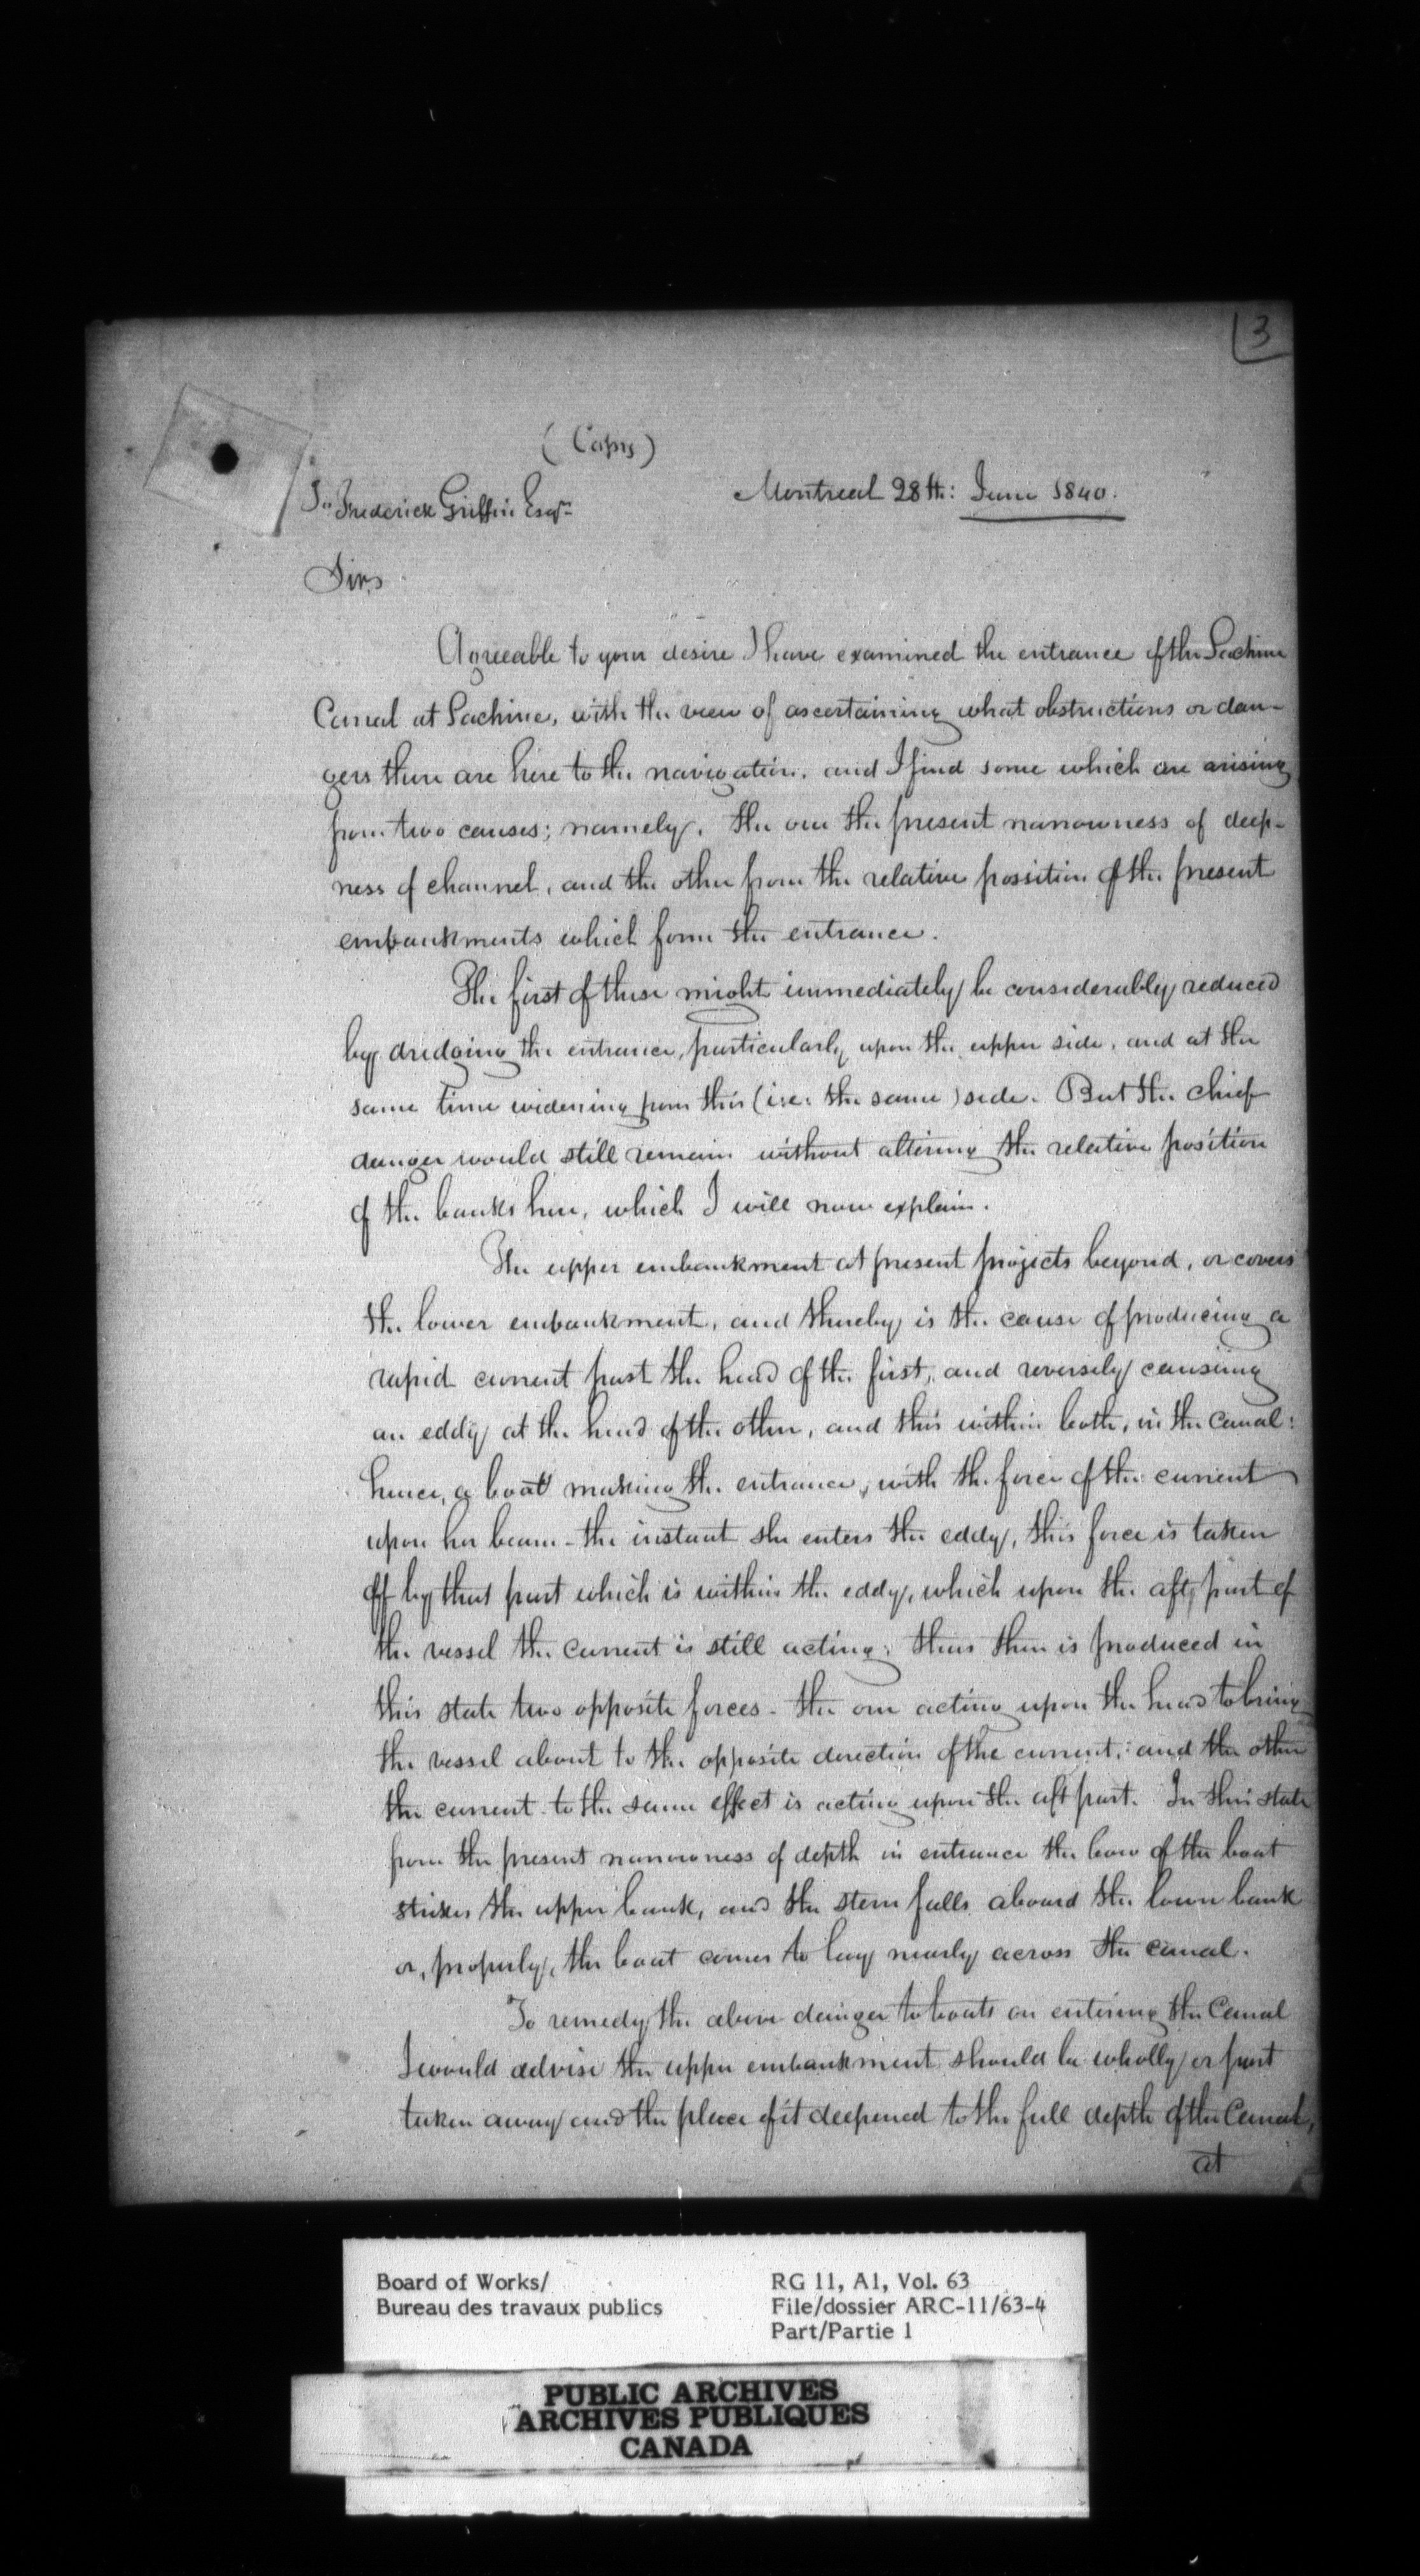 3
(Copy)
Montreal 28th: June 1840.
To Frederick Griffin Esqre
Sir,
Agreeable to your desire I have examined the entrance of the Lachine
Canal at Lachine, with the view of ascertaining what obstructions or dan-
gers there are here to the navigation, and I find some which are arising
from two causes; namely, the one the present narrowness of deep-
ness of channel, and the other from the relative possition of the present
embankments which form the entrance.
The first of these might immediately be considerably reduced
by dredging the entrance, particularly upon the upper side, and at the
same time widening from this (i.e. the same) side. But the chief
danger would still remain without altering the relative position
of the banks here, which I will now explain.
The upper embankment at present projects beyond, or covers
the lower embankment, and thereby is the cause of producing a
rapid current past the head of the first, and reversely causing
an eddy at the head of the other, and this within both, in the Canal:
hence, a boat making the entrance, with the force of the current
upon her beam - the instant she enters the eddy, this force is taken
off by that part which is within the eddy, which upon the aft part of
the vessel the current is still acting: thus then is produced in
this state two opposite forces - the one acting upon the head to bring
the vessel about to the opposite direction of the current; and the other
the current to the same effect is acting upon the aft part. In this state
from the present narrowness of depth in entrance the bow of the boat
strikes the upper bank, and the stern falls aboard the lower bank
or, properly, the boat comes to lay nearly across the canal.
To remedy the above danger to boats on entering the Canal
I would advise the upper embankment should be wholly or part
taken away and the place of it deepened to the full depth of the Canal,
at
Board of Works/
Bureau des travaux publics
RG 11, A1, Vol. 63
File/dossier ARC-11/63-4
Part/Partie 1
PUBLIC ARCHIVES
ARCHIVES PUBLIQUES
CANADA